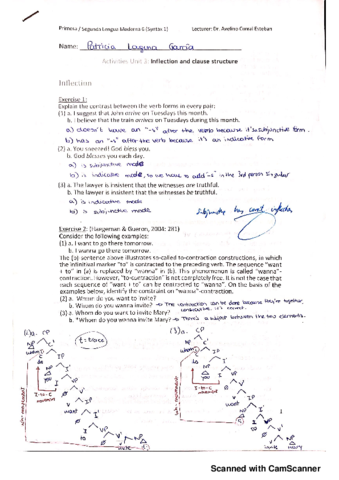 Primera / Segunda Lengua Moderna 6 (Syntax 1) Lecturer: Dr. Avelino Corral Esteban
Name: Patricia Laguna García
Activities Unit 2: Inflection and clause structure
Inflection
Exercise 1:
Explain the contrast between the verb forms in every pair:
(1) a. I suggest that John arrive on Tuesday this month.
b. I believe that the train arrives on Tuesdays during this month.
a) doesn't have an "-s" after the verb because it's subjunctive form.
b) has an "-s" after the verb because it's an indicative form
(2) a. You sneezed! God bless you.
b. God blesses you each day.
a) is subjunctive mode
b) is indicative mode, so we have to add "-s" in the 3rd person singular
(3) a. The lawyer is insistent that the witnesses are truthful.
b. The lawyer is insistent that the witnesses be truthful.
a) is indicative mode
b) is subjunctive mode
Exercise 2: (Haegeman & Gueron, 2004: 281)
Consider the following examples:
(1) a. I want to go there tomorrow.
b. I wanna go there tomorrow.
The (b) sentence above illustrates so-called to-contraction constructions, in which
the infinitival marker "to" is contracted to the preceding verb. The sequence "want
+ to" in (a) is replaced by "wanna" in (b). This phenomenon is called "wanna"-
contraction. However, "to-contraction" is not completely free. It is not the case that
each sequence of "want + to" can be contracted to "wanna". On the basis of the
examples below, identify the constraint on "wanna"-contraction.
(2) a. Whom do you want to invite?
b. Whom do you wanna invite? → the contraction can be done because they're together,
consecutive, it's correct.
(3) a. Whom do you want to invite Mary?
b. *Whom do you wanna invite Mary? → There's a subject between the two elements.
(2) a. CP (3) a. CP
t = trace
NP C' NP C'
whom C IP whom C IP
do NP I' do NP I'
you I VP you I VP
I-to-C movement
V IP
want
to
invite
invite Mary
Scanned with CamScanner